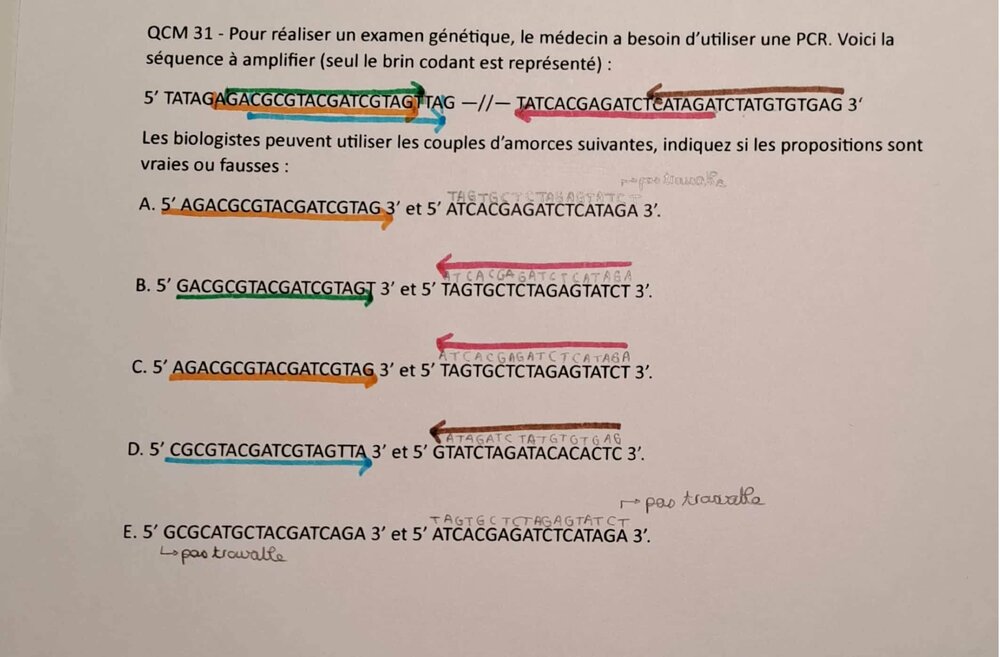 QCM 31 - Pour réaliser un examen génétique, le médecin a besoin d'utiliser une PCR. Voici la
séquence à amplifier (seul le brin codant est représenté) :
5' TATAGAGACGCGTACGATCGTAGTTAG —//— TATCACGAGATCTCATAGATCTATGTGTGAG 3'
Les biologistes peuvent utiliser les couples d'amorces suivantes, indiquez si les propositions sont
vraies ou fausses :
→ pas trouvable
TAGTGCTCTAGAGTATCT
A. 5' AGACGCGTACGATCGTAG 3' et 5' ATCACGAGATCTCATAGA 3'.
ATCACGAGATCTCATAGA
B. 5' GACGCGTACGATCGTAGT 3' et 5' TAGTGCTCTAGAGTATCT 3'.
ATCACGAGATCTCATAGA
C. 5' AGACGCGTACGATCGTAG 3' et 5' TAGTGCTCTAGAGTATCT 3'.
ATAGATCTATGTGTGAG
D. 5' CGCGTACGATCGTAGTTA 3' et 5' GTATCTAGATACACACTC 3'.
→ pas trouvable
TAGTGCTCTAGAGTATCT
E. 5' GCGCATGCTACGATCAGA 3' et 5' ATCACGAGATCTCATAGA 3'.
↳ pas trouvable